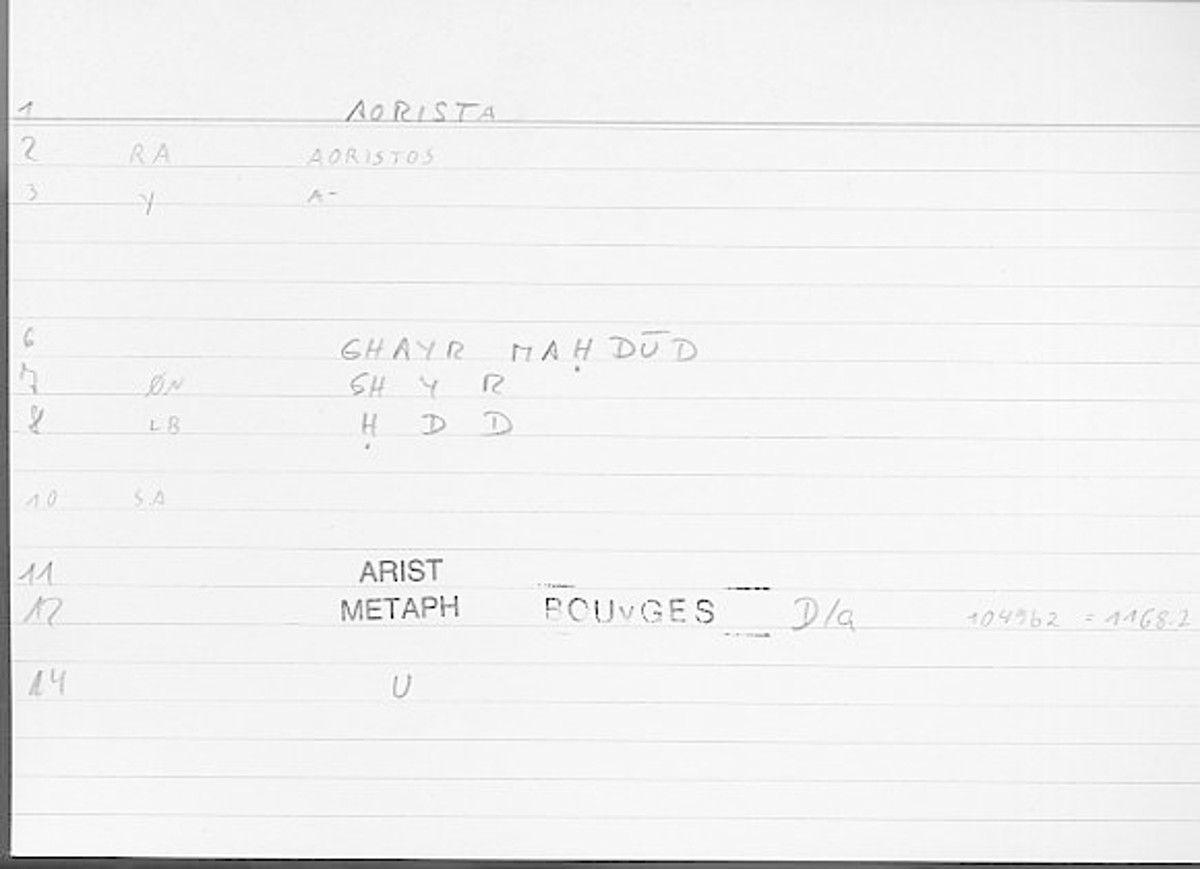 1 AORISTA
2 RA AORISTOS
3 Y A-
6 GHAYR MAḤDŪD
7 ØN GH Y R
8 LB Ḥ D D
10 SA
11 ARIST
12 METAPH BOUvGES D/a 1049b2 = 1168.2
14 U